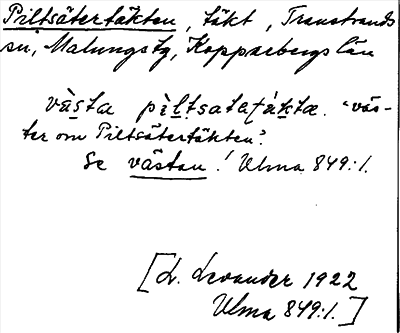 Piltsätertäkten, täkt, Transtrands
sn, Malungs tg, Kopparbergs län
västa pìltsatatǻkta. "väs-
ter om Piltsätertäkten".
Se västan! Ulma 849:1.
[L. Levander 1922
Ulma 849:1.]